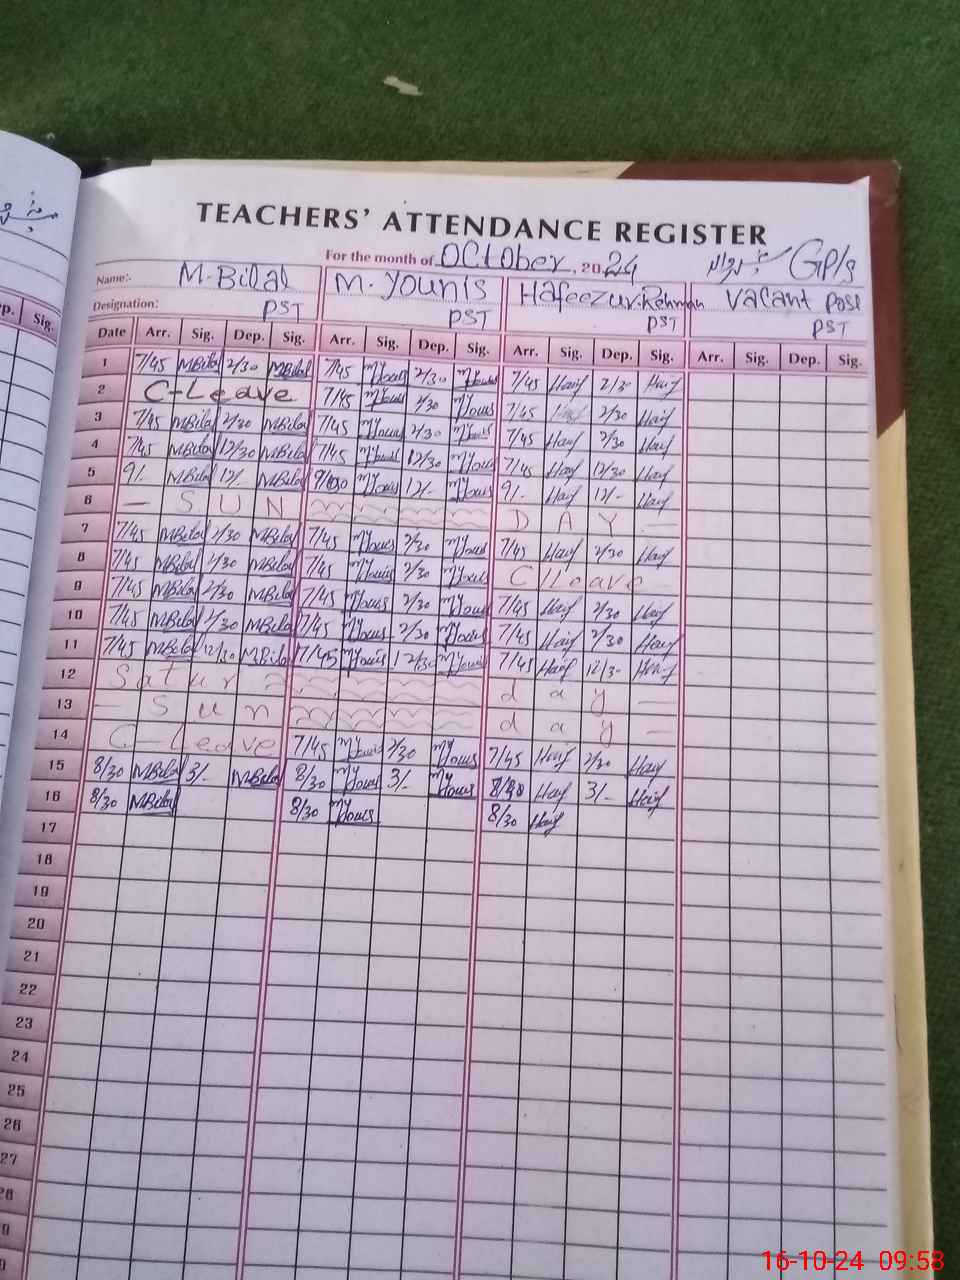 TEACHERS' ATTENDANCE REGISTER
For the month of October, 2024 GP/s
Name:- M.Bilal M. Younis Hafeezur.Rehman Vacant Post
Designation: PST PST PST PST
p. Sig. Date Arr. Sig. Dep. Sig. Arr. Sig. Dep. Sig. Arr. Sig. Dep. Sig. Arr. Sig. Dep. Sig.
1 7/45 MBilal 2/30 MBilal 7/45 MYounis 2/30 MYounis 7/45 Haif 2/30 Haif
2 C-Leave 7/45 MYounis 2/30 MYounis 7/45 Haif 2/30 Haif
3 7/45 MBilal 2/30 MBilal 7/45 MYounis 2/30 MYounis 7/45 Haif 2/30 Haif
4 7/45 MBilal 12/30 MBilal 7/45 MYounis 12/30 MYounis 7/45 Haif 12/30 Haif
5 9/- MBilal 12/- MBilal MYounis 12/- MYounis 9/- Haif 12/- Haif
6 — S U N D A Y —
7 7/45 MBilal 2/30 MBilal 7/45 MYounis 2/30 MYounis 7/45 Haif 2/30 Haif
8 7/45 MBilal 2/30 MBilal 7/45 MYounis 2/30 MYounis C Leave
9 7/45 MBilal 2/30 MBilal 7/45 MYounis 2/30 MYounis 7/45 Haif 2/30 Haif
10 7/45 MBilal 2/30 MBilal 7/45 MYounis 2/30 MYounis 7/45 Haif 2/30 Haif
11 7/45 MBilal 12/30 MBilal 7/45 MYounis 12/30 MYounis 7/45 Haif 12/30 Haif
12 Satur d a y —
13 — S u n d a y —
14 C-Leave 7/45 MYounis 2/30 MYounis 7/45 Haif 2/30 Haif
15 8/30 MBilal 3/- MBilal 8/30 MYounis 3/- MYounis 8/30 Haif 3/- Haif
16 8/30 MBilal 8/30 MYounis 8/30 Haif
17
18
19
20
21
22
23
24
25
26
27
28
9
16-10-24 09:58